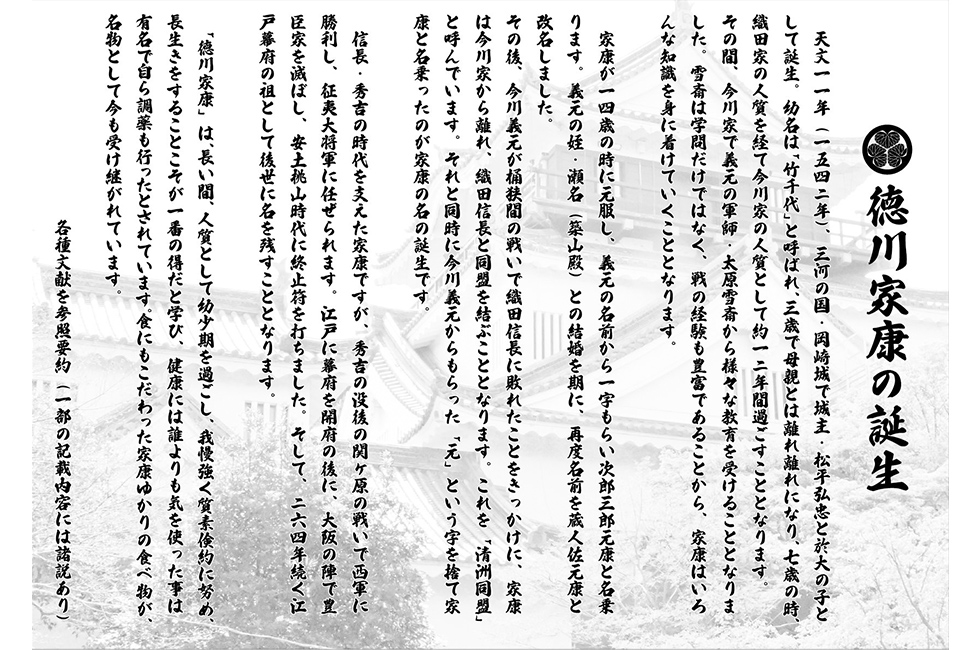 徳川家康の誕生
天文一一年(一五四二年)、三河の国・岡崎城で城主・松平弘忠と於大の子と
して誕生。幼名は「竹千代」と呼ばれ、三歳で母親とは離れ離れになり、七歳の時、
織田家の人質を経て今川家の人質として約一二年間過ごすこととなります。
その間、今川家で義元の軍師・太原雪斎から様々な教育を受けることとなりま
した。雪斎は学問だけではなく、戦の経験も豊富であることから、家康はいろ
んな知識を身に着けていくこととなります。
家康が一四歳の時に元服し、義元の名前から一字もらい次郎三郎元康と名乗
ります。義元の姪・瀬名(築山殿)との結婚を期に、再度名前を蔵人佐元康と
改名しました。
その後、今川義元が桶狭間の戦いで織田信長に敗れたことをきっかけに、家康
は今川家から離れ、織田信長と同盟を結ぶこととなります。これを「清洲同盟」
と呼んでいます。それと同時に今川義元からもらった「元」という字を捨て家
康と名乗ったのが家康の名の誕生です。
信長・秀吉の時代を支えた家康ですが、秀吉の没後の関ヶ原の戦いで西軍に
勝利し、征夷大将軍に任ぜられます。江戸に幕府を開府の後に、大阪の陣で豊
臣家を滅ぼし、安土桃山時代に終止符を打ちました。そして、二六四年続く江
戸幕府の祖として後世に名を残すこととなります。
「徳川家康」は、長い間、人質として幼少期を過ごし、我慢強く質素倹約に努め、
長生きをすることこそが一番の得だと学び、健康には誰よりも気を使った事は
有名で自ら調薬も行ったとされています。食にもこだわった家康ゆかりの食べ物が、
名物として今も受け継がれています。
各種文献を参照要約(一部の記載内容には諸説あり)